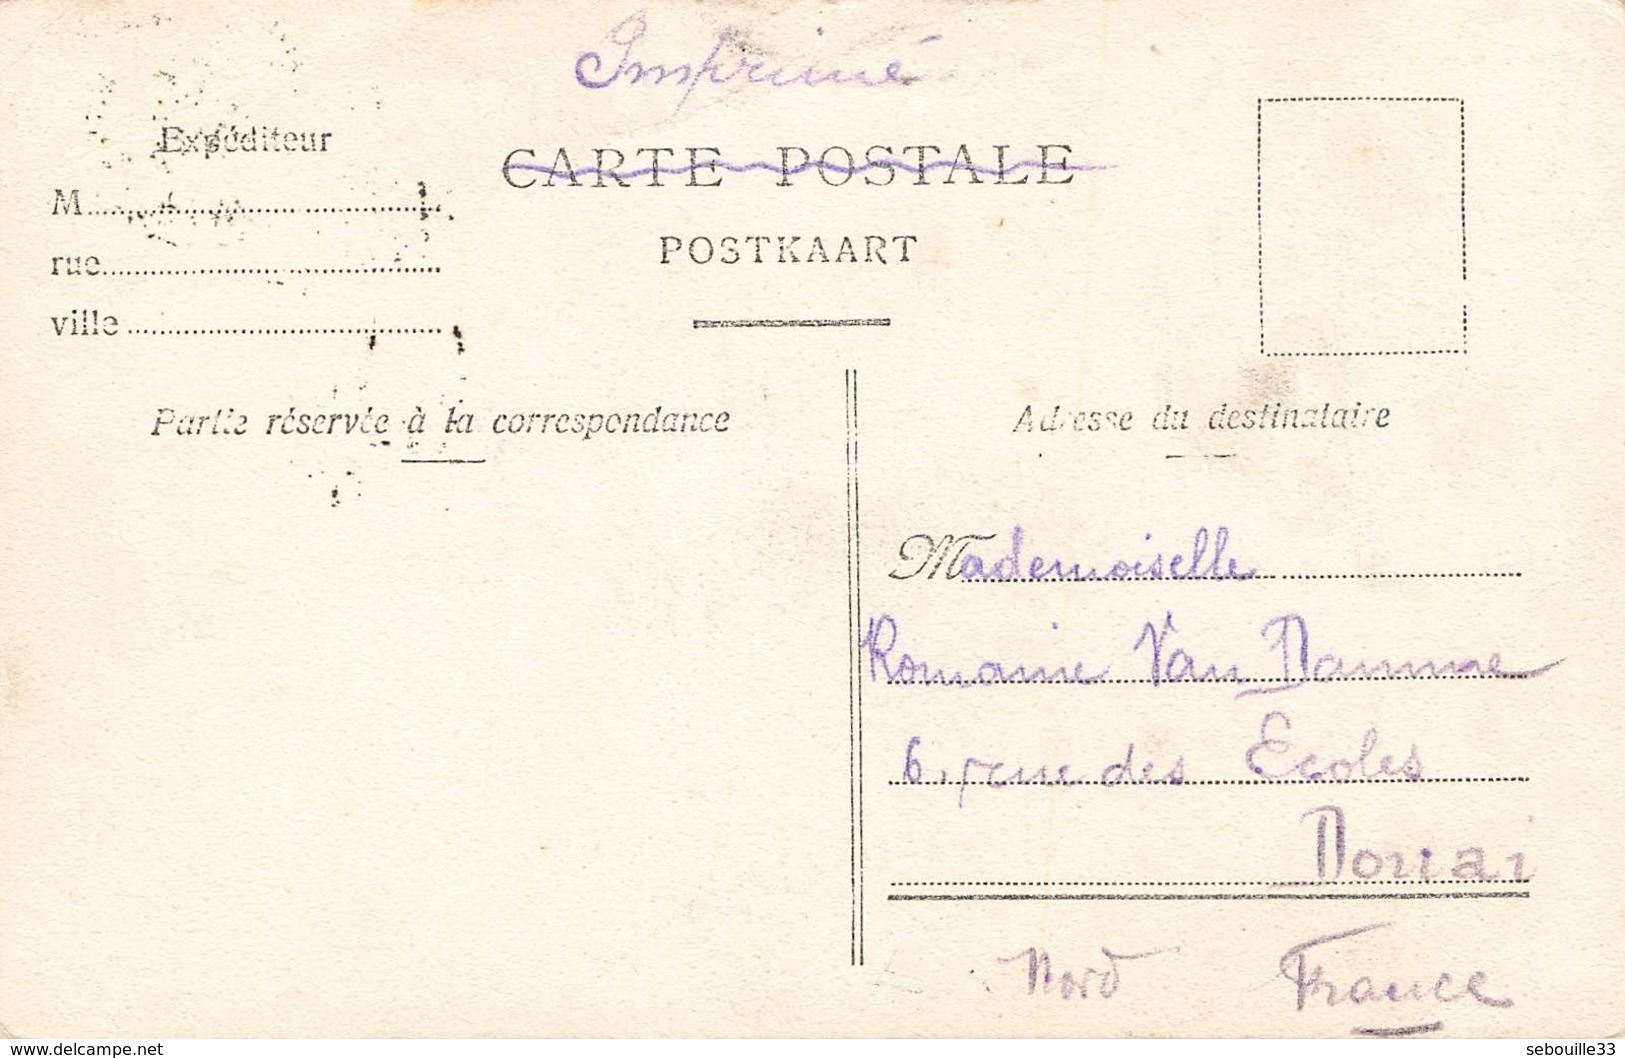 Imprimé
CARTE POSTALE
POSTKAART
Expéditeur
M
rue
ville
Partie réservée à la correspondance
Adresse du destinataire
Mademoiselle
Romaine Van Damme
6, rue des Ecoles
Douai
Nord France
www.delcampe.net
sebouille33